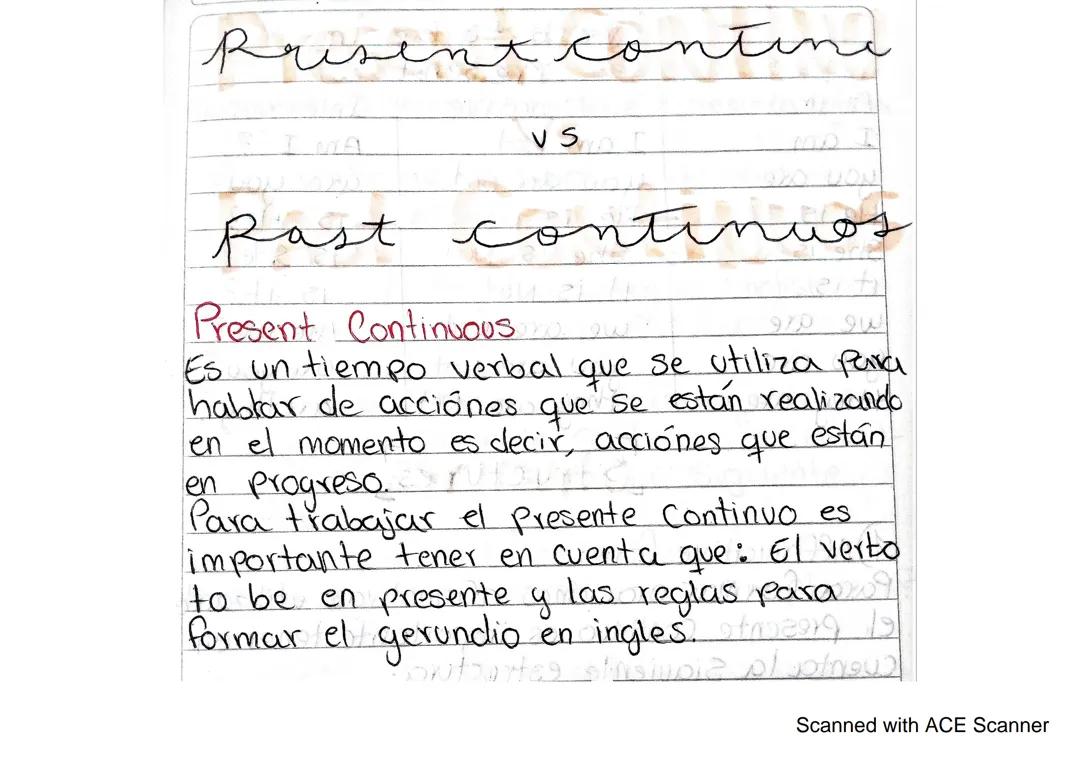 Present continu
vs
Past continuos
Present Continuous
Es un tiempo verbal que se utiliza para
hablar de acciónes que se están realizando
en el momento es decir, acciónes que están
en progreso.
Para trabajar el presente Continuo es
importante tener en cuenta que: El verbo
to be en presente y las reglas para
formar el gerundio en ingles.
Scanned with ACE Scanner